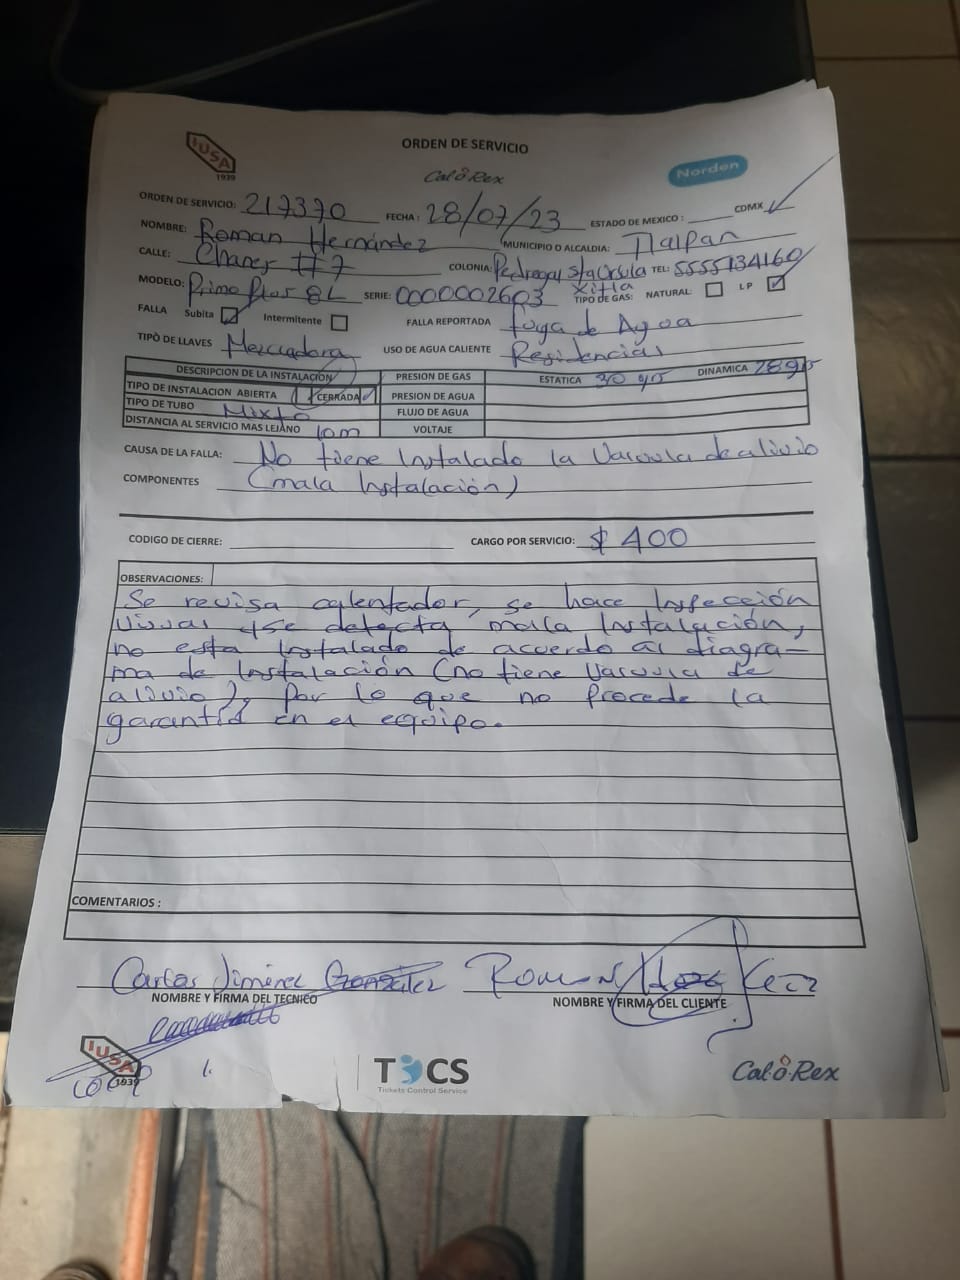 IUSA
1939
ORDEN DE SERVICIO
Cal-o-Rex
Norden
ORDEN DE SERVICIO: 217370 FECHA: 28/07/23 ESTADO DE MEXICO: CDMX
NOMBRE: Roman Hernández MUNICIPIO O ALCALDIA: Tlalpan
CALLE: Chanes #7 COLONIA: Pedregal Sta Ursula Xitla TEL: 5555134160
MODELO: Primo Plus 8L SERIE: 0000002603 TIPO DE GAS: NATURAL: LP
FALLA Subita Intermitente FALLA REPORTADA Fuga de Agua
TIPÒ DE LLAVES Mezcladora USO DE AGUA CALIENTE Residencial
DESCRIPCION DE LA INSTALACION PRESION DE GAS ESTATICA 30 DINAMICA
TIPO DE INSTALACION ABIERTA CERRADA PRESION DE AGUA
TIPO DE TUBO Mixto FLUJO DE AGUA
DISTANCIA AL SERVICIO MAS LEJANO 10m VOLTAJE
CAUSA DE LA FALLA: No tiene Instalado la Valvula de alivio
COMPONENTES (mala Instalación)
CODIGO DE CIERRE: CARGO POR SERVICIO: $ 400
OBSERVACIONES:
Se revisa calentador, se hace Inspección
visual y se detecta mala Instalación,
no esta Instalado de acuerdo al diagra-
ma de Instalación (no tiene Valvula de
alivio), por lo que no procede la
garantía en el equipo.
COMENTARIOS :
Carlos Jiménez González
NOMBRE Y FIRMA DEL TECNICO NOMBRE Y FIRMA DEL CLIENTE
IUSA
1939
TOCS
Tickets Control Service
Cal-o-Rex